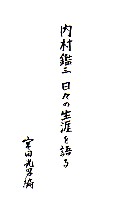 内村鑑三 日々の生涯を語る
室田光男編